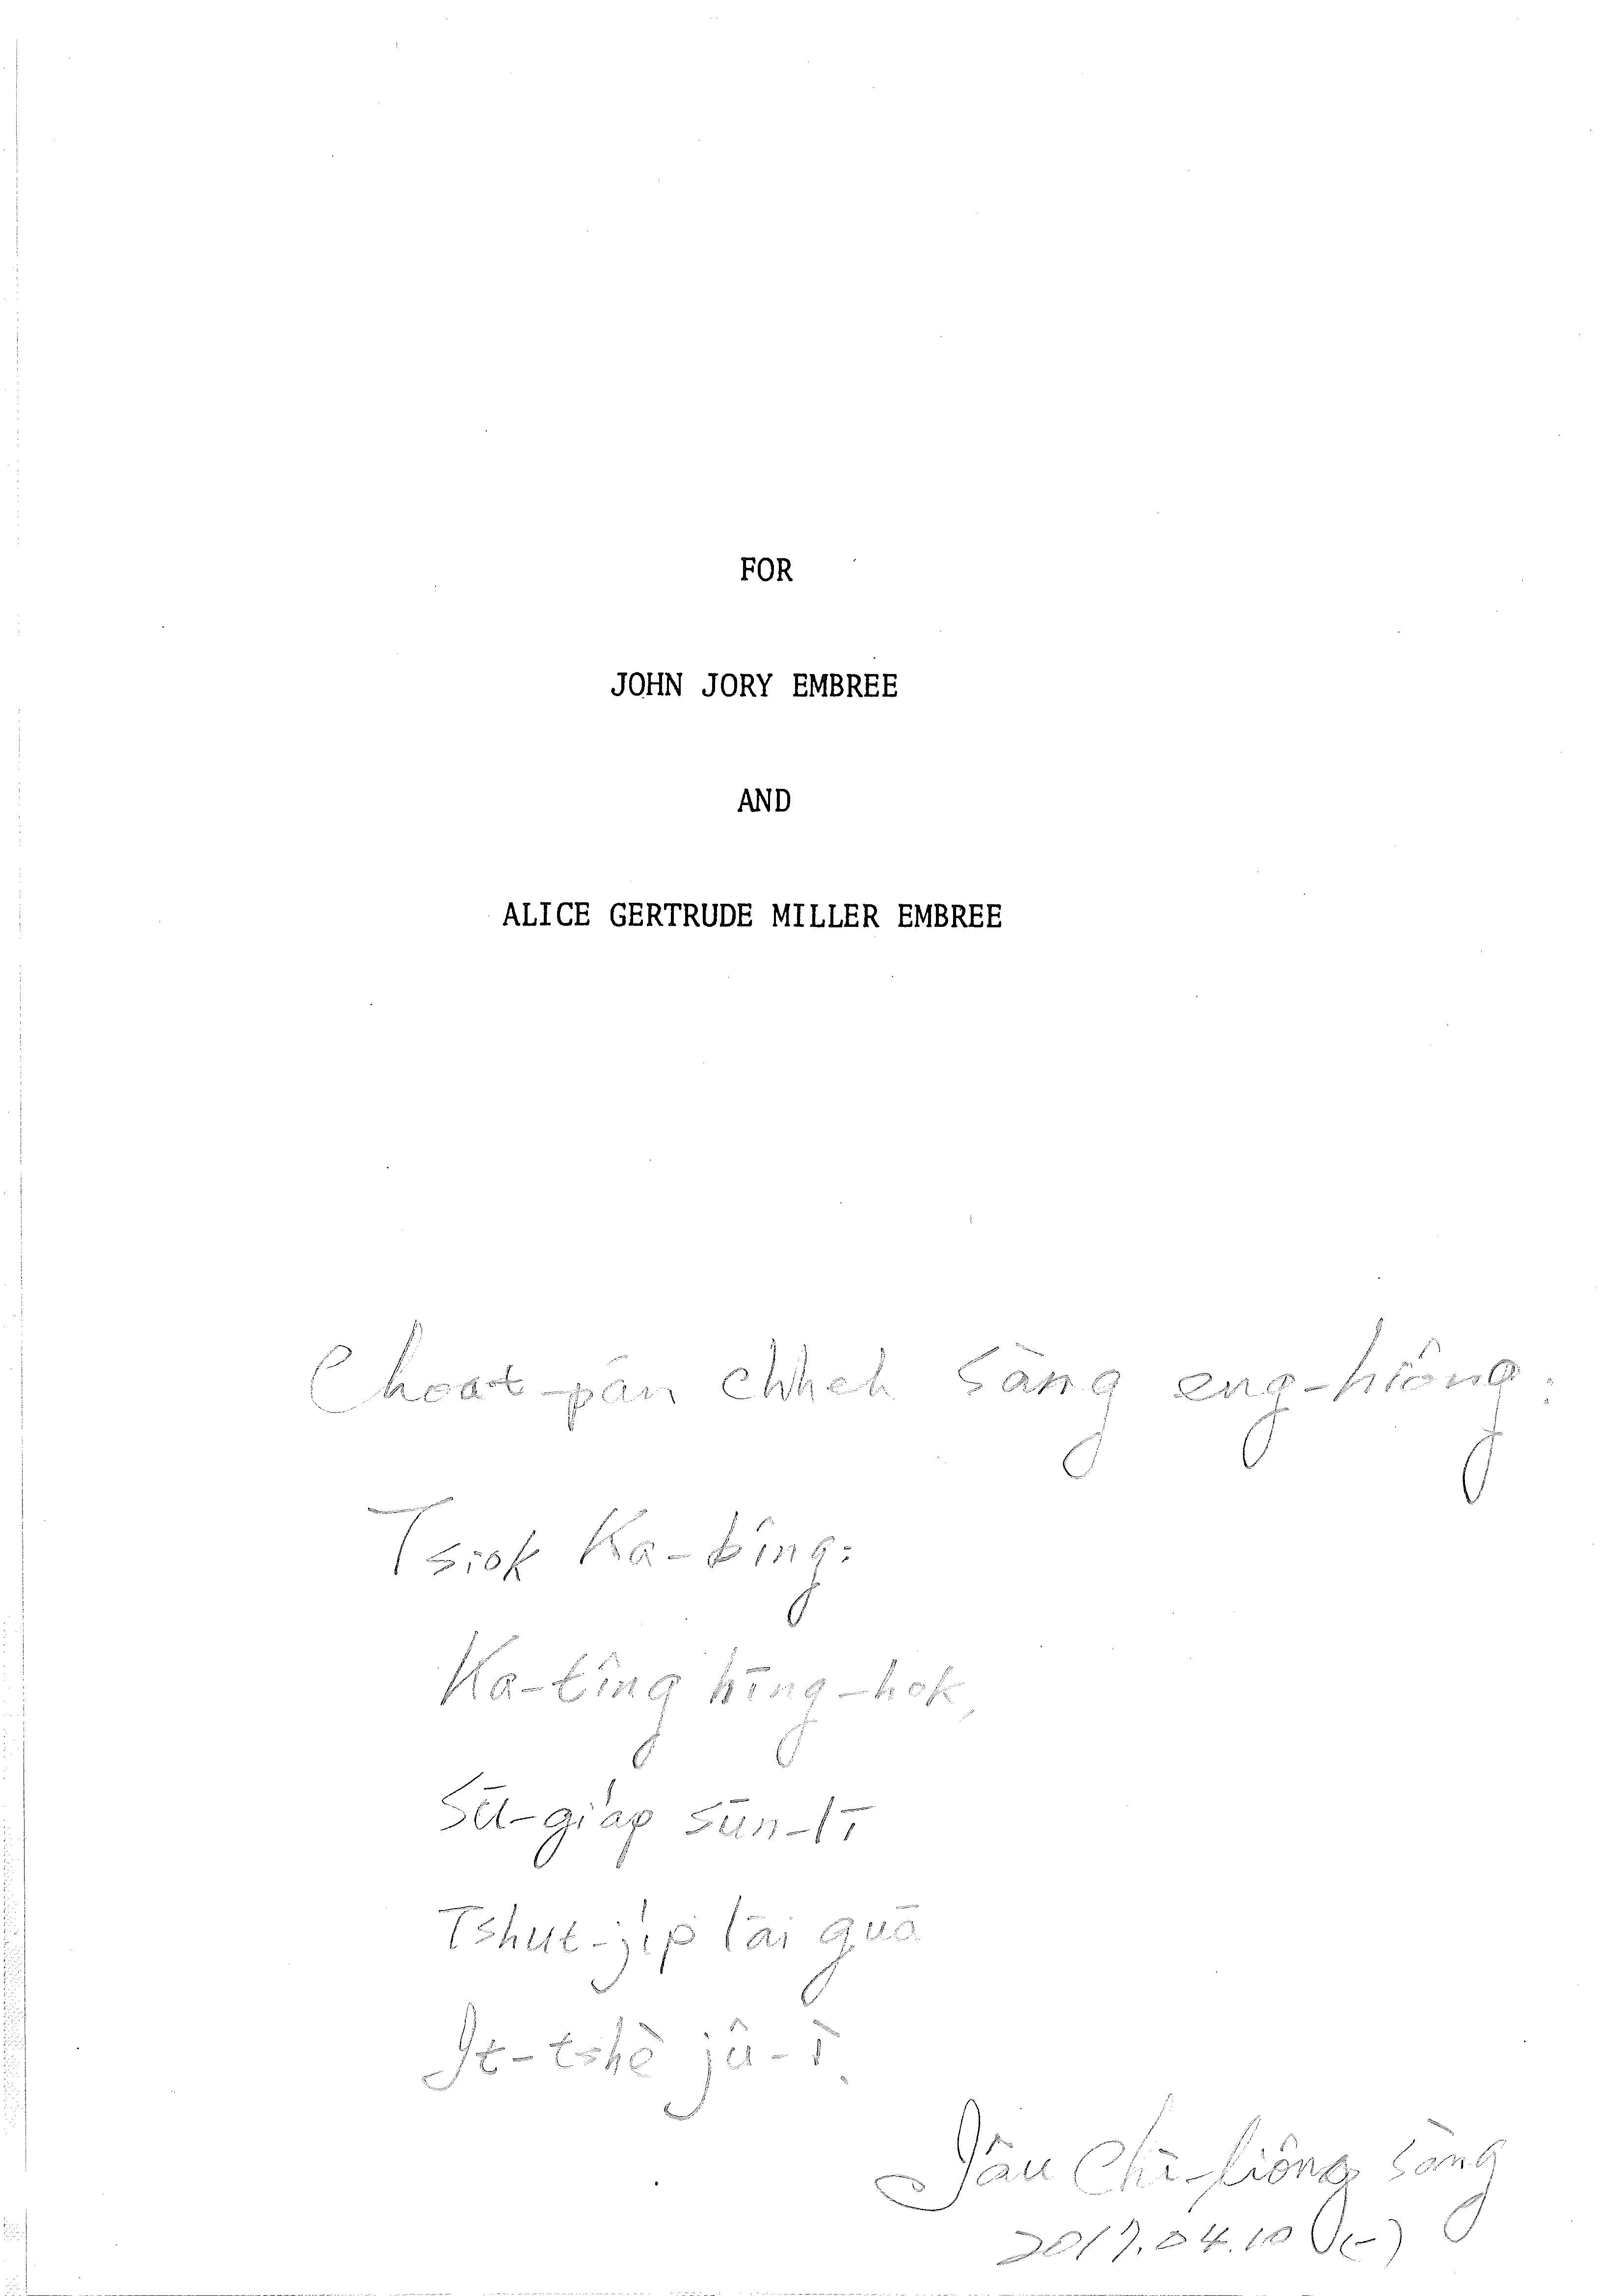 FOR
JOHN JORY EMBREE
AND
ALICE GERTRUDE MILLER EMBREE
Choat-pán chheh sàng eng-hiông:
Tsiok Ka-bîng:
Ka-tîng hīng-hok,
Sū-gia̍p sūn-lī
Tshut-ji̍p lāi guā
It-tshè jû-ì.
Iâu Chì-liông sàng
2017.04.10 (-)